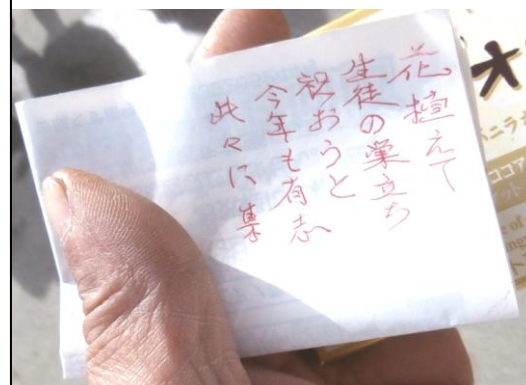 花植えて
生徒の巣立ち
祝おうと
今年も有志
此々に集
オ
バニラ
ココア